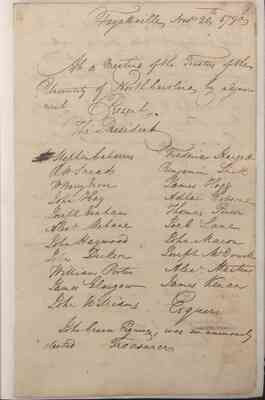 Fayetteville, Novr. 20th 1790
At a Meeting of the Trustees of the
University of North Carolina, by adjourn
ment
Present,
The President
Stephen Cabarrus Frederick Hargett
Benjamin Smith
James Hogg
John Hay Adlai Osborne
Joseph Graham Thomas Person
Alexr. Mebane Joel Lane
John Haywood John Macon
Jos. Dickson Joseph McDowell
William Porter Alexr. Martin
James Glasgow James Kenan
John Williams Esquires
John Craven Esquire, was unanimously
elected Treasurer